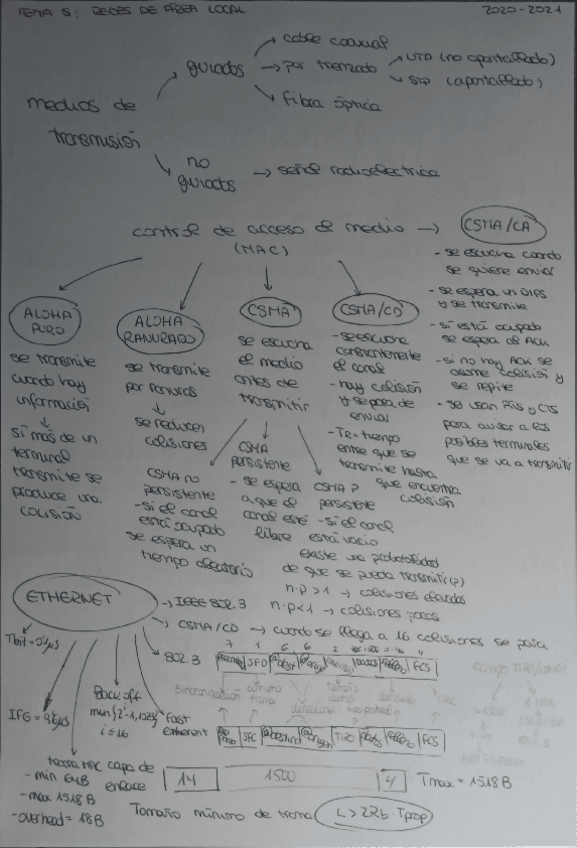 TEMA 5: REDES DE ÁREA LOCAL 2020-2021
medios de transmisión
guiados
cable coaxial
par trenzado
UTP (no apantallado)
STP (apantallado)
fibra óptica
no guiados → señal radioeléctrica
control de acceso al medio →
(MAC)
CSMA/CA
- se escucha cuando
se quiere enviar
- se espera un DIFS
y se transmite
- si está ocupado
se espera al ACK
- si no hay ACK se
asume colisión y
se repite
- se usan RTS y CTS
para avisar a los
posibles terminales
que se va a transmitir
ALOHA
PURO
se transmite
cuando hay
información
si más de un
terminal
transmite se
produce una
COLISIÓN
ALOHA
RANURADO
se transmite
por ranuras
se reducen
colisiones
CSMA
se escucha
el medio
antes de
transmitir
CSMA/CD
- se escucha
constantemente
el canal
- hay colisión
y se para de
enviar
- Te = tiempo
entre que se
transmite hasta
que encuentra
colisión
CSMA no
persistente
- si el canal
está ocupado
se espera un
tiempo aleatorio
CSMA
persistente
- se espera
a que el
canal esté
libre
CSMA P
persistente
- si el canal
está vacío
existe una probabilidad
de que se pueda transmitir (p)
n·p > 1 → colisiones elevadas
n·p < 1 → colisiones pocas
ETHERNET
→ IEEE 802.3
→ CSMA/CD → cuando se llega a 16 colisiones se para
802.3
7 1 6 6 2 4
SFD FCS
sincronización
CRC
Fast
Ethernet
SFC TIPO FCS
IFG = 9'6μs
Back off
i ≤ 16
trama MAC capa de
enlace
- min 64B
- max 1518B
- overhead = 18B
14 1500 4 Tmax = 1518B
Tamaño mínimo de trama L > 2Rb · Tprop